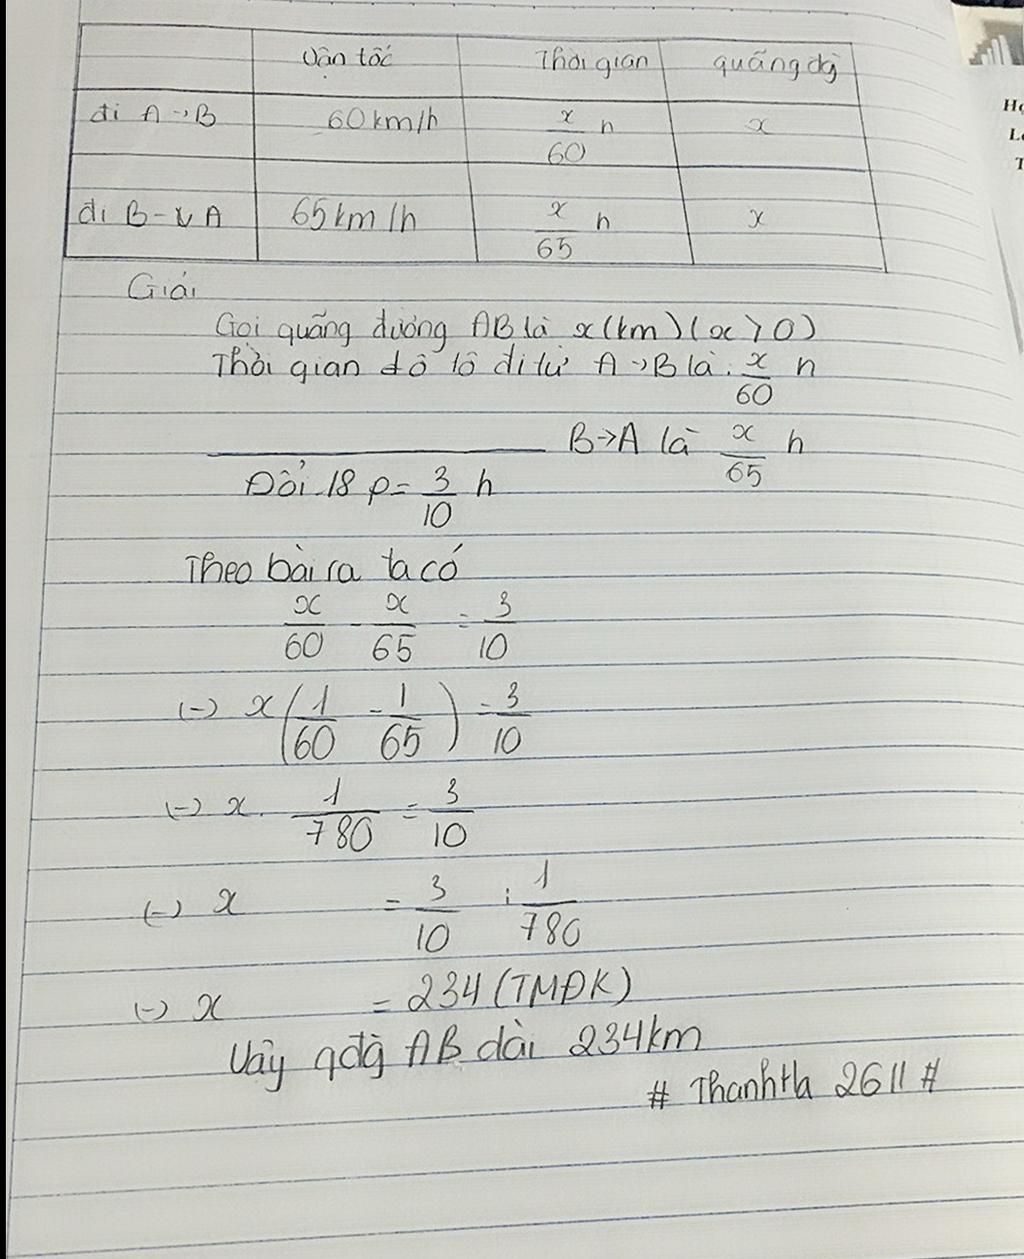 Vận tốc Thời gian quãng đg
đi A→B 60km/h x/60 h x
đi B→A 65km/h x/65 h x
Giải
Gọi quãng đường AB là x(km)(x>0)
Thời gian ô tô đi từ A→B là: x/60 h
B→A là x/65 h
Đổi 18 p = 3/10 h
Theo bài ra ta có
x/60 - x/65 = 3/10
(-) x(1/60 - 1/65) = 3/10
(-) x. 1/780 = 3/10
(-) x = 3/10 : 1/780
(-) x = 234 (TMĐK)
Vậy qđg AB dài 234km
# ThanhHa 2611 #